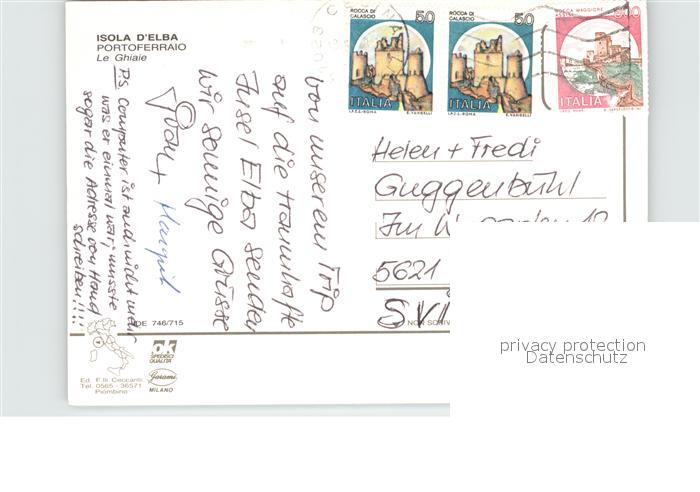 ISOLA D'ELBA
PORTOFERRAIO
Le Ghiaie
ROCCA DI
CALASCIO
50
ITALIA
I.P.Z.S.-ROMA
ROCCA DI
CALASCIO
50
ITALIA
I.P.Z.S.-ROMA
ROCCA MAGGIORE
ITALIA
Von unserem Trip
auf die traumhafte
Insel Elba senden
wir sonnige Grüsse
P.S. Computer ist auch nicht mehr
was er einmal war, musste
sogar die Adresse von Hand
schreiben!!!!
Helen + Fredi
Guggenbühl
Im
5621
DE 746/715
NON SCRIV
OK
SPEDIREC
QUALITÀ
Garami
MILANO
Ed. F.lli Ceccanti
Tel. 0565 - 36571
Piombino
privacy protection
Datenschutz